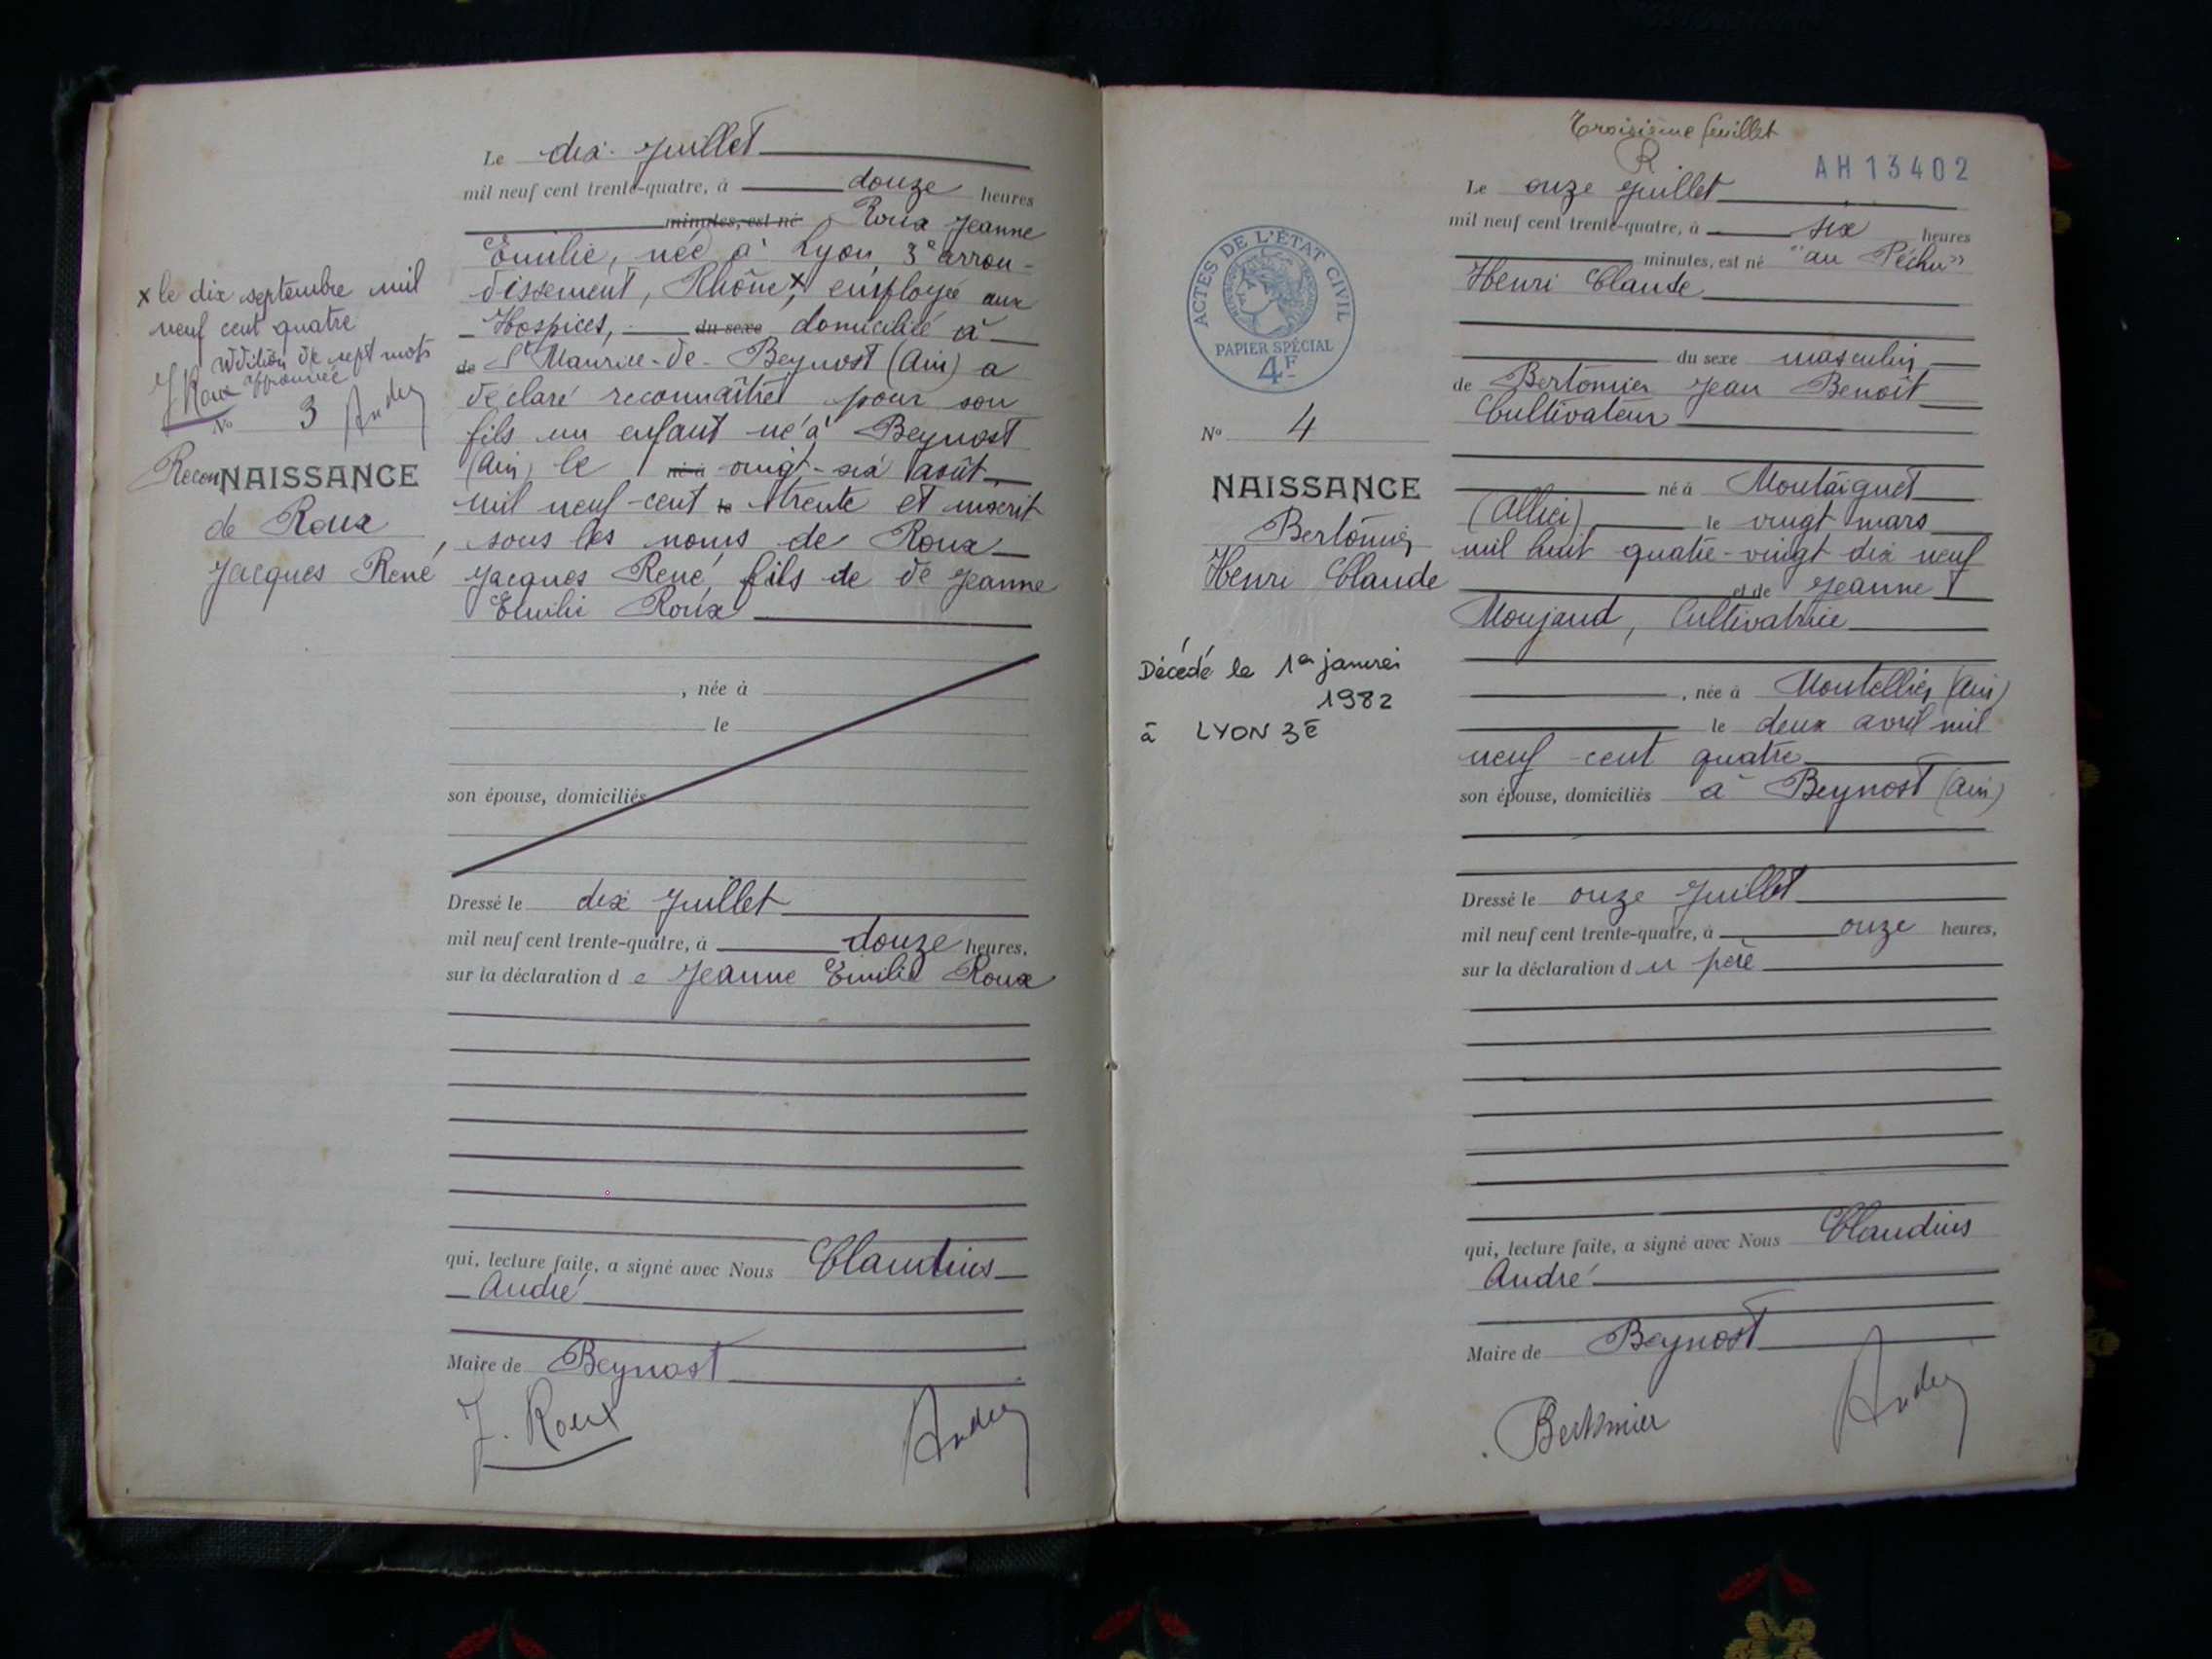 Le dix juillet
mil neuf cent trente-quatre, à douze heures
minutes, est né Roux Jeanne
Emilie, née à Lyon, 3e arron-
dissement, Rhône x, employée aux
Hospices, du sexe domiciliée à
de St Maurice-de-Beynost (Ain) a
déclaré reconnaître pour son
fils un enfant né à Beynost
(Ain) le né à vingt-six août
mil neuf cent trente et inscrit
sous les noms de Roux
Jacques René, fils de de Jeanne
Emilie Roux
, née à
le
son épouse, domiciliés
Dressé le dix juillet
mil neuf cent trente-quatre, à douze heures,
sur la déclaration de Jeanne Emilie Roux
qui, lecture faite, a signé avec Nous Claudius
André
Maire de Beynost
J. Roux André
x le dix septembre mil
neuf cent quatre
Addition de sept mots
approuvée
J Roux
No 3 André
ReconNAISSANCE
de Roux
Jacques René
Troisième feuillet
R
AH13402
Le onze juillet
mil neuf cent trente-quatre, à six heures
minutes, est né "au Péchu"
Henri Claude
du sexe masculin
de Bertomier Jean Benoît
Cultivateur
né à Montaiguet
(Allier) le vingt mars
mil huit quatre-vingt dix neuf
et de Jeanne
Moujaud, Cultivatrice
, née à Montellier (Ain)
le deux avril mil
neuf cent quatre
son épouse, domiciliés à Beynost (Ain)
Dressé le onze juillet
mil neuf cent trente-quatre, à onze heures,
sur la déclaration du père
qui, lecture faite, a signé avec Nous Claudius
André
Maire de Beynost
Bertomier André
ACTES DE L'ÉTAT CIVIL
PAPIER SPÉCIAL
4F
No 4
NAISSANCE
Bertomier
Henri Claude
Décédé le 1er janvier
1982
à LYON 3e